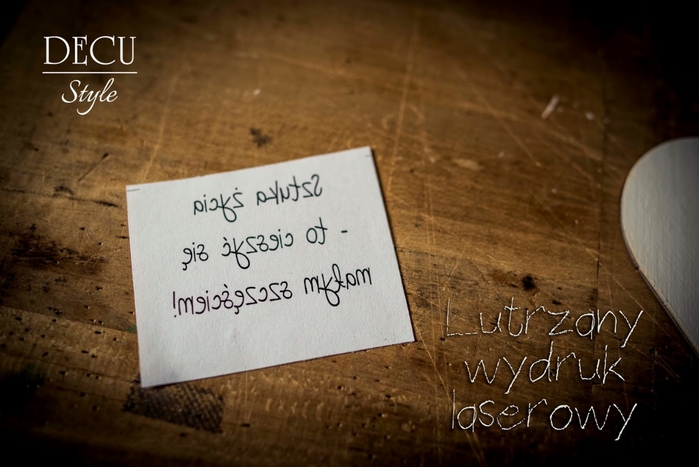 DECU
Style
Sztuka życia
- to cieszyć się
małym szczęściem!
Lutrzany
wydruk
laserowy